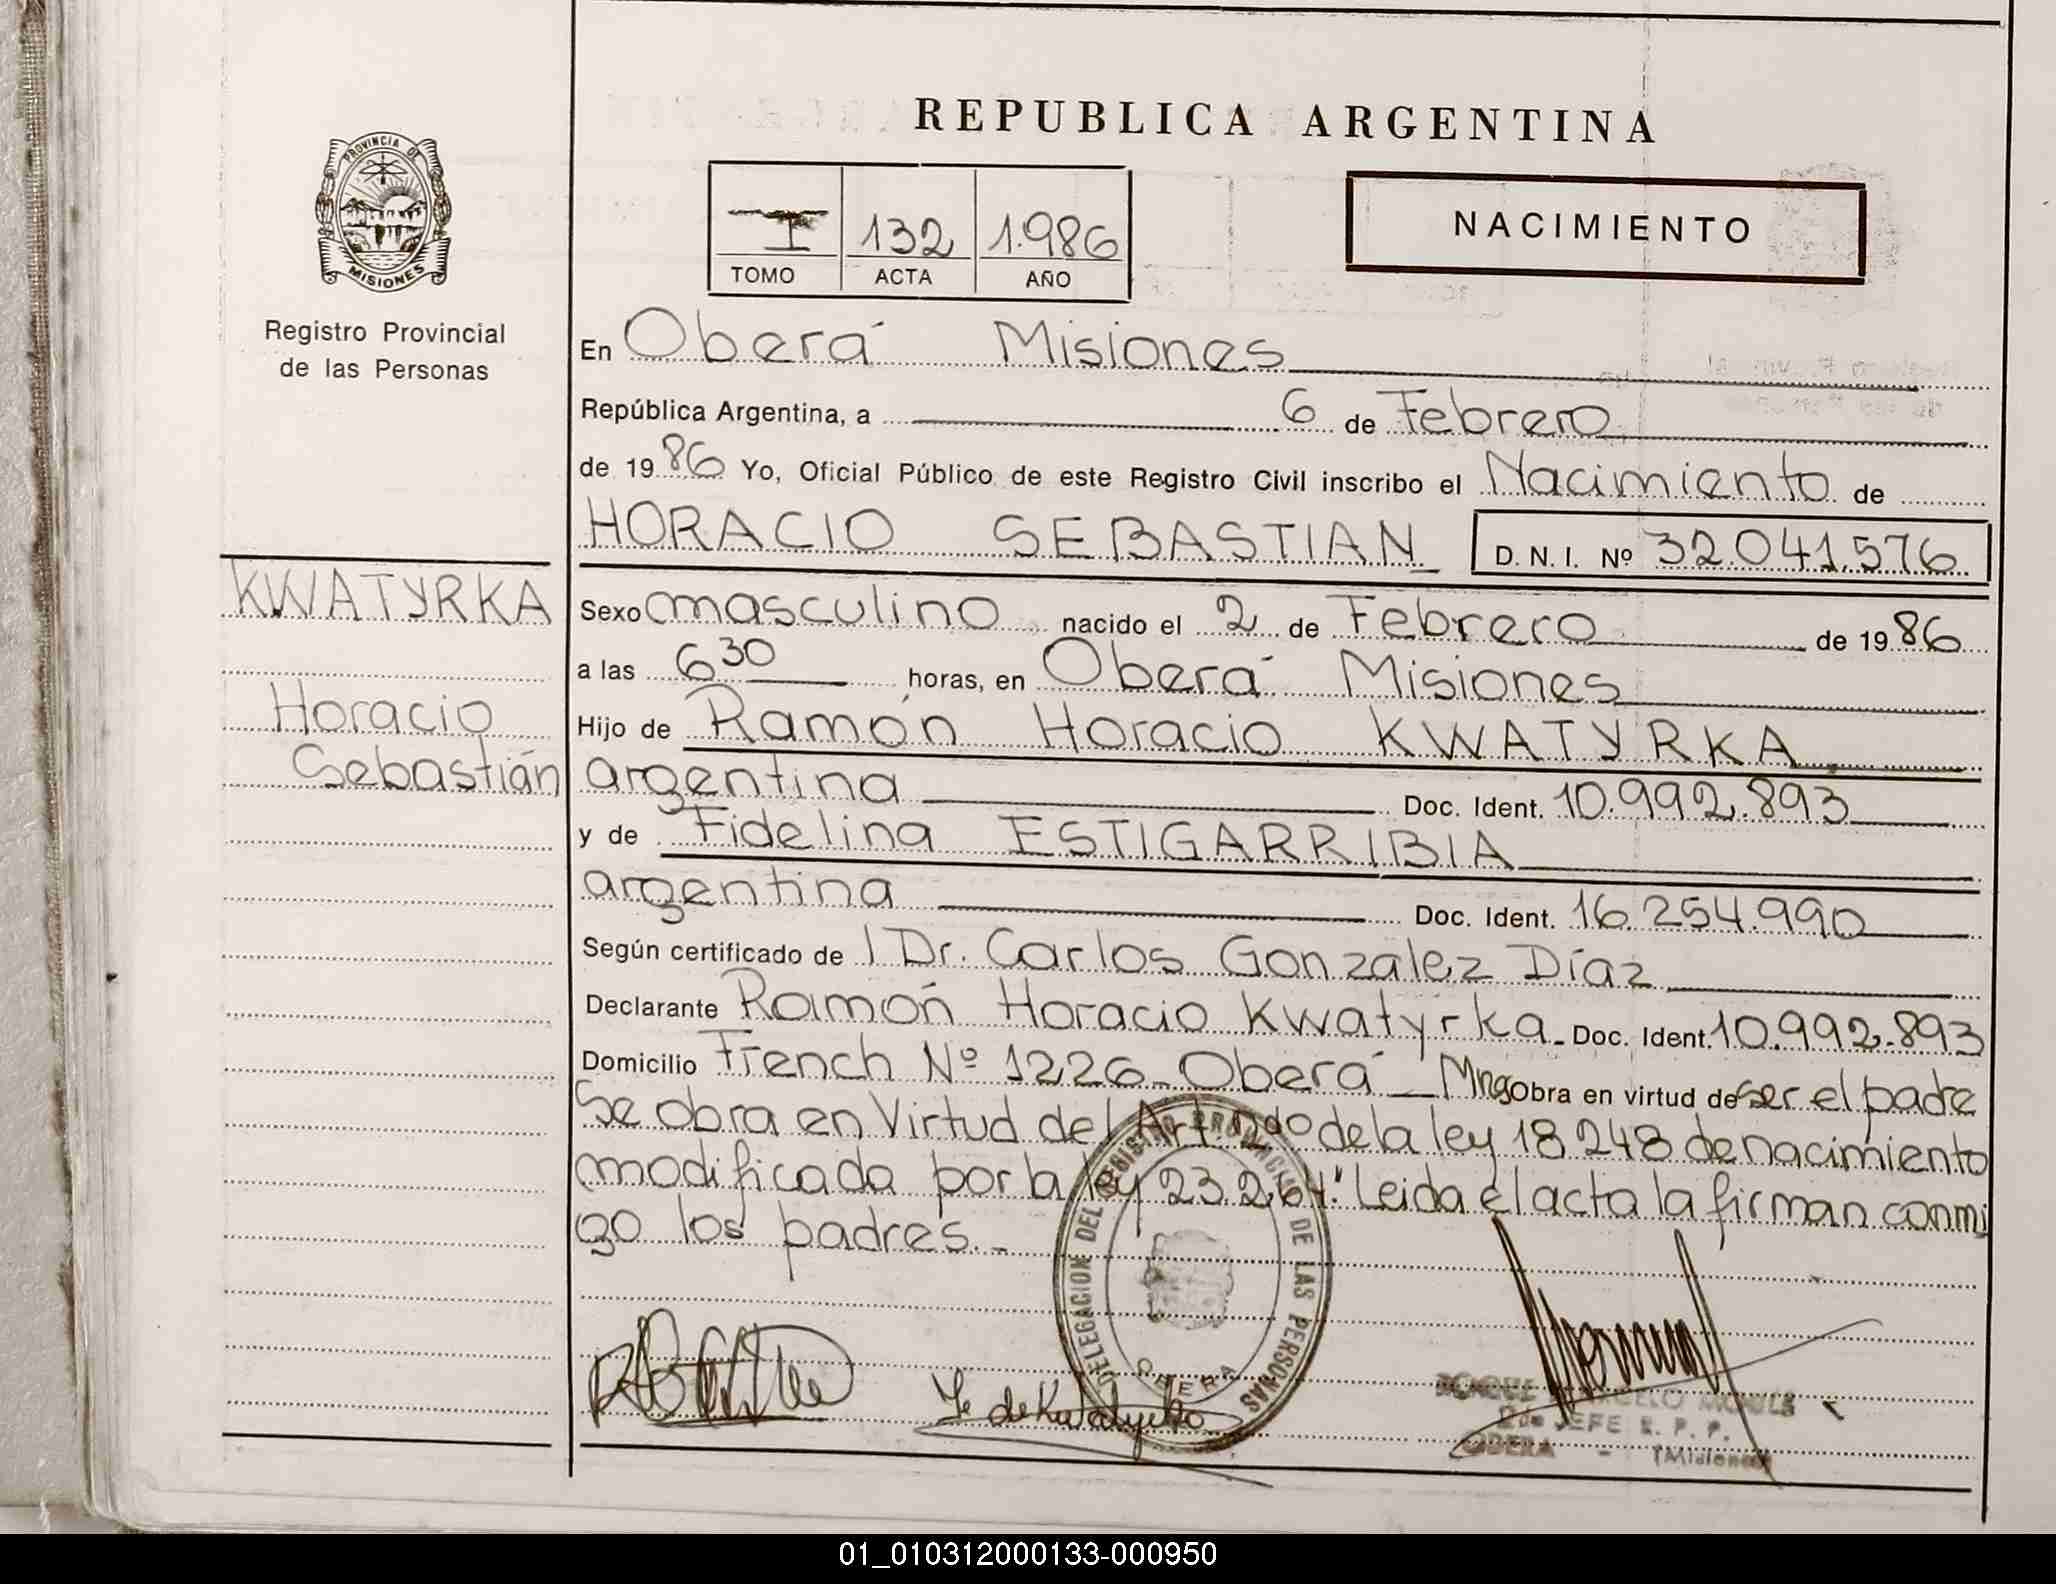 REPUBLICA ARGENTINA
PROVINCIA DE
MISIONES
Registro Provincial
de las Personas
I 132 1.986
TOMO ACTA AÑO
NACIMIENTO
En Oberá Misiones
República Argentina, a 6 de Febrero
de 1986 Yo, Oficial Público de este Registro Civil inscribo el Nacimiento de
HORACIO SEBASTIAN D. N. I. Nº 32.041.576
KWATYRKA
Horacio
Sebastián
Sexo masculino nacido el 2 de Febrero de 1986
a las 6 30 horas, en Oberá Misiones
Hijo de Ramón Horacio KWATYRKA
argentina Doc. Ident. 10.992.893
y de Fidelina ESTIGARRIBIA
argentina Doc. Ident. 16.254.990
Según certificado de l Dr. Carlos Gonzalez Díaz
Declarante Ramón Horacio Kwatyrka Doc. Ident. 10.992.893
Domicilio French Nº 1226 Oberá Mnes Obra en virtud de ser el padre
Se obra en Virtud del Art. 2do de la ley 18248 de nacimiento
modificada por la ley 23.264." Leida el acta la firman conmi
go los padres.
DELEGACION DEL REGISTRO PROVINCIAL DE LAS PERSONAS
OBERA
de Kwatyrka
2do JEFE R. P. P.
OBERA - (Misiones)
01_010312000133-000950